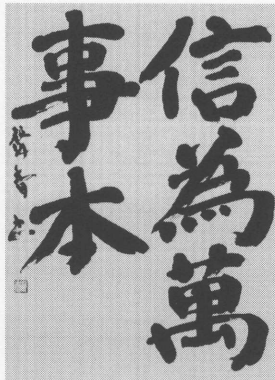 信為萬
事本